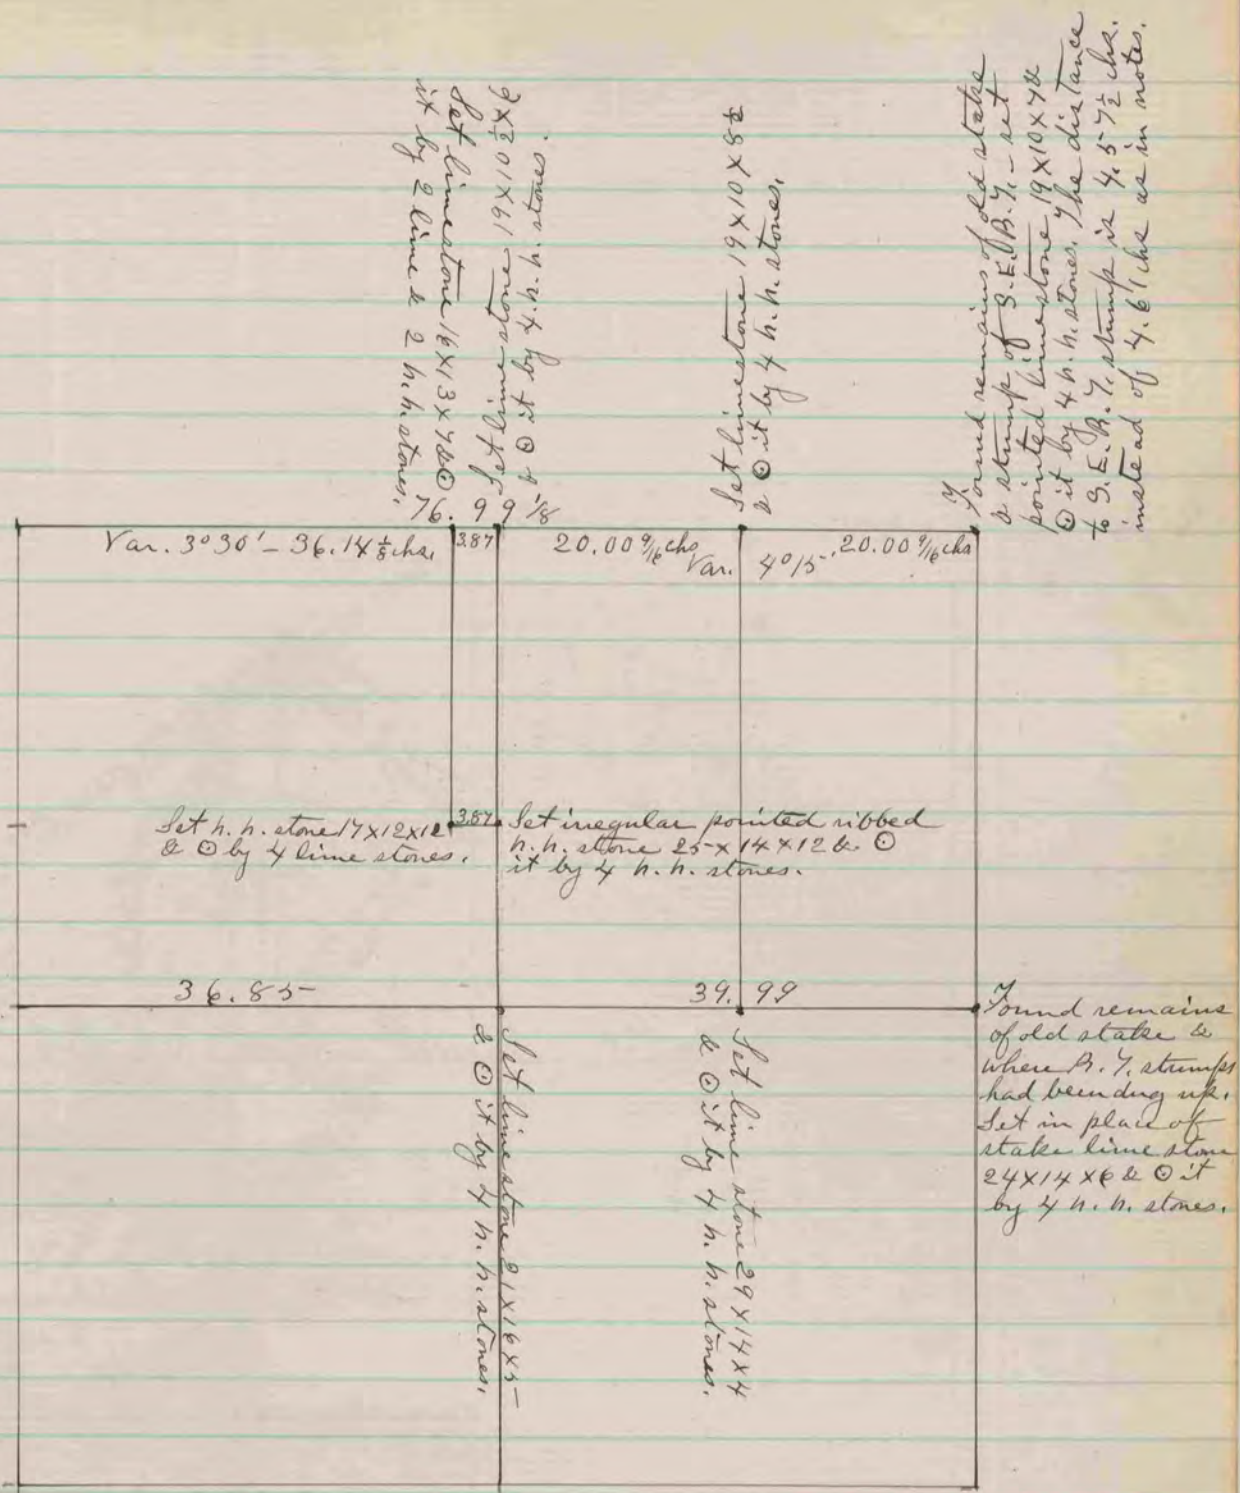 Set limestone 16x13x7 & ⊙
it by 2 lime & 2 h.h. stones.
Set lime stone 19x10½x9
& ⊙ it by 4 h.h. stones.
Set limestone 19x10x8½
& ⊙ it by 4 h.h. stones.
Found remains of old stake
& stump of S.E.B.T. - set
pointed limestone 19x10x7 &
⊙ it by 4 h.h. stones. The distance
to S.E.B.T. stump is 4.57½ chs.
instead of 4.61 chs as in notes.
76.99⅛
Var. 3°30' - 36.14⅛ chs.
3.87
20.00 9/16 chs
Var. 4°15'
20.00 9/16 chs
Set h.h. stone 17x12x12
& ⊙ by 4 lime stones.
3.87
Set irregular pointed ribbed
h.h. stone 25x14x12 & ⊙
it by 4 h.h. stones.
36.85
39.99
Found remains
of old stake &
where B.T. stumps
had been dug up.
Set in place of
stake lime stone
24x14x6 & ⊙ it
by 4 h.h. stones.
Set lime stone 21x16x5
& ⊙ it by 4 h.h. stones.
Set lime stone 29x14x4
& ⊙ it by 4 h.h. stones.